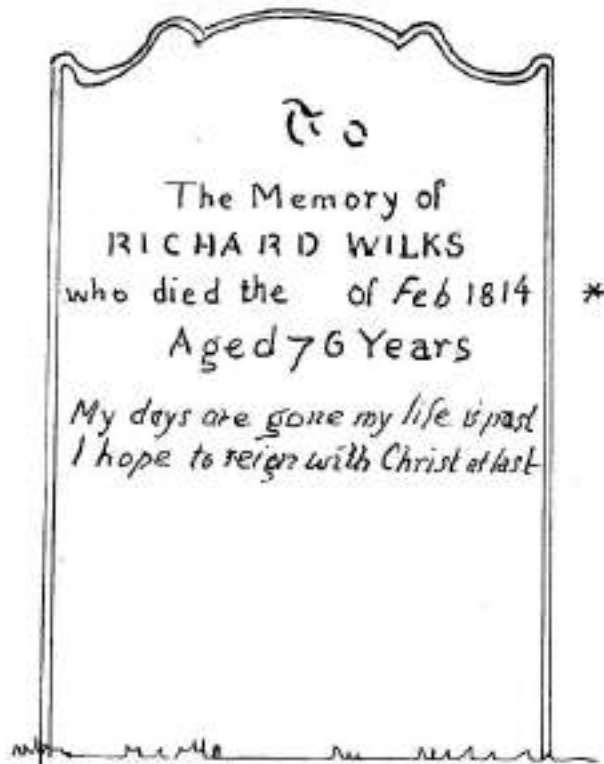 To
The Memory of
RICHARD WILKS
who died the of Feb 1814 *
Aged 76 Years
My days are gone my life is past
I hope to reign with Christ at last